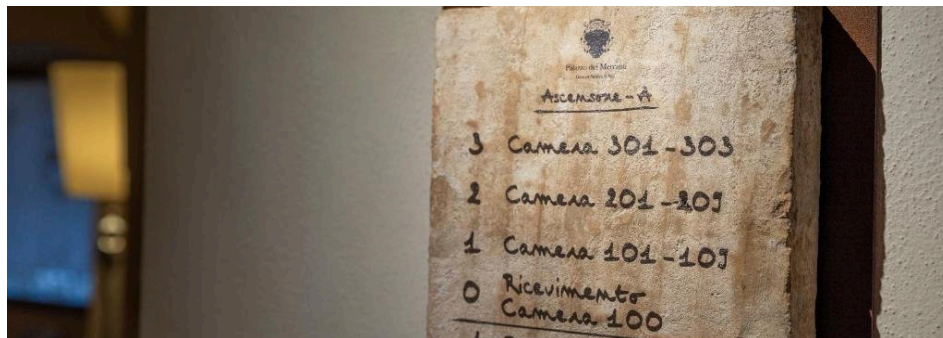 Palazzo dei Mercanti
Ascensore - A
3 Camera 301 - 303
2 Camera 201 - 209
1 Camera 101 - 109
0 Ricevimento
Camera 100